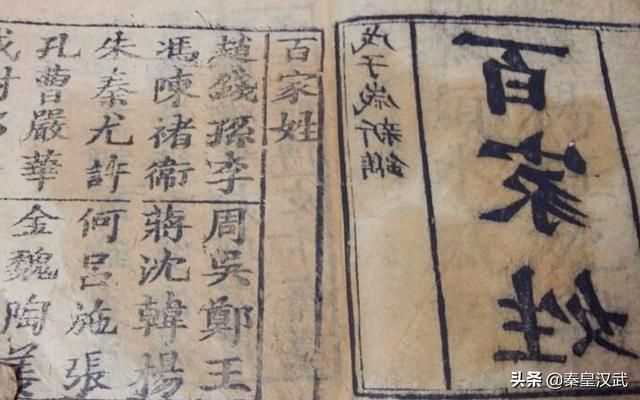 百家姓
戊子歲新鐫
百家姓
趙錢孫李
周吳鄭王
馮陳褚衛
蔣沈韓楊
朱秦尤許
何呂施張
孔曹嚴華
金魏陶姜
头条 @秦皇汉武